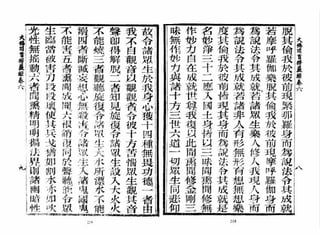 大佛頂首楞嚴經卷六
八
脫其倫我於彼前現緊那羅身而為說法令其成就
若摩呼羅伽樂脫其倫我於彼前現摩呼羅伽身而
為說法令其成就若諸眾生樂人修人我現人身而
為說法令其成就若諸非人有形無形有想無想樂
度其倫我於彼前皆現其身而為說法令其成就是
名妙淨三十二應入國土身皆以三昧聞熏聞修無
作妙力自在成就世尊我復以此聞熏聞修金剛三
昧無作妙力與諸十方三世六道一切眾生同悲仰
故令諸眾生於我身心獲十四種無畏功德一者由
我不自觀音以觀觀者令彼十方苦惱眾生觀其音
聲即得解脫二者知見旋復令諸眾生設入大火火
不能燒三者觀聽旋復令諸眾生大水所漂水不能
溺四者斷滅妄想心無殺害令諸眾生入諸鬼國鬼
不能害五者熏聞成聞六根銷復同於聲聽能令眾
生臨當被害刀段段壞使其兵戈猶如割水亦如吹
光性無搖動六者聞熏精明明遍法界則諸幽暗性
大佛頂首楞嚴經卷六
九